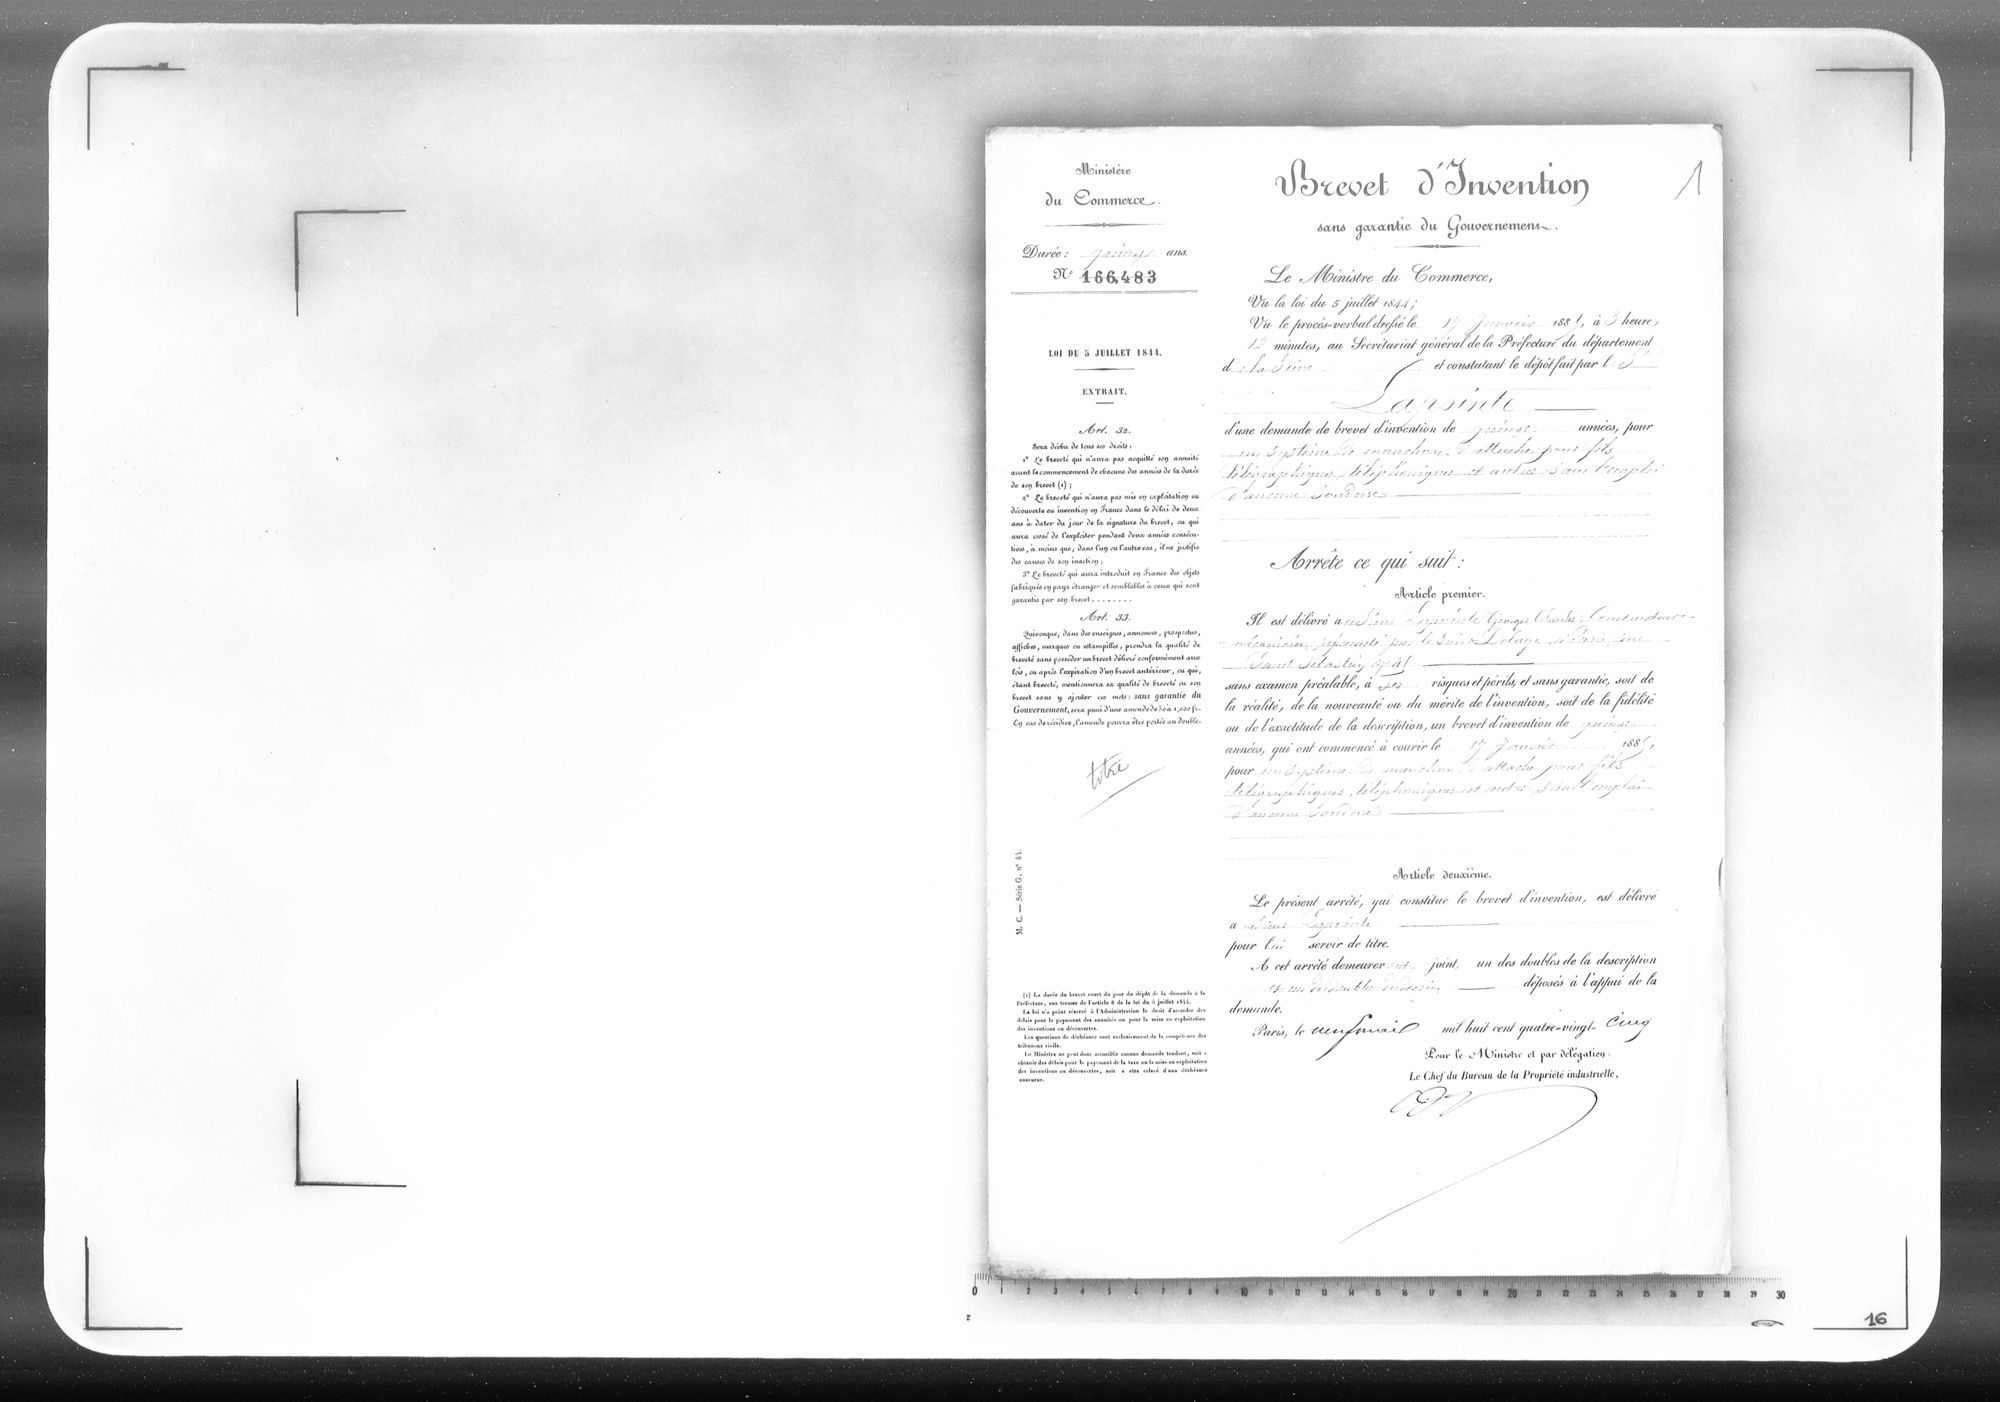 Ministère
du Commerce.
Durée : quinze ans.
N° 166,483
LOI DU 5 JUILLET 1844.
EXTRAIT.
Art. 32.
Sera déchu de tous ses droits :
1° Le breveté qui n'aura pas acquitté son annuité
avant le commencement de chacune des années de la durée
de son brevet (1) ;
2° Le breveté qui n'aura pas mis en exploitation sa
découverte ou invention en France dans le délai de deux
ans à dater du jour de la signature du brevet, ou qui
aura cessé de l'exploiter pendant deux années consécu-
tives, à moins que, dans l'un ou l'autre cas, il ne justifie
des causes de son inaction ;
3° Le breveté qui aura introduit en France des objets
fabriqués en pays étranger et semblables à ceux qui sont
garantis par son brevet........
Art. 33.
Quiconque, dans des enseignes, annonces, prospectus,
affiches, marques ou estampilles, prendra la qualité de
breveté sans posséder un brevet délivré conformément aux
lois, ou après l'expiration d'un brevet antérieur, ou qui,
étant breveté, mentionnera sa qualité de breveté ou son
brevet sans y ajouter ces mots : sans garantie du
Gouvernement, sera puni d'une amende de 50 à 1,000 fr.
En cas de récidive, l'amende pourra être portée au double.
titre
M. C. — Série G, n° 41.
(1) La durée du brevet court du jour du dépôt de la demande à la
Préfecture, aux termes de l'article 8 de la loi du 5 juillet 1844.
La loi n'a point réservé à l'Administration le droit d'accorder des
délais pour le payement des annuités ou pour la mise en exploitation
des inventions ou découvertes.
Les questions de déchéance sont exclusivement de la compétence des
tribunaux civils.
Le Ministre ne peut donc accueillir aucune demande tendant, soit à
obtenir des délais pour le payement de la taxe ou la mise en exploitation
des inventions ou découvertes, soit à être relevé d'une déchéance
encourue.
Brevet d'Invention
1
sans garantie du Gouvernement.
Le Ministre du Commerce,
Vu la loi du 5 juillet 1844 ;
Vu le procès-verbal dressé le 17 Janvier 1885, à 3 heure,
12 minutes, au Secrétariat général de la Préfecture du département
de la Seine et constatant le dépôt fait par l S
Lapointe
d'une demande de brevet d'invention de quinze années, pour
un système de manchon d'attache pour fils
télégraphiques, téléphoniques et autres sans l'emploi
d'aucune soudure
Arrête ce qui suit :
Article premier.
Il est délivré au Sieur Lapointe Georges Charles, Constructeur
mécanicien représenté par le Sieur Delage, à Paris, rue
Saint Sébastien, n° 45
sans examen préalable, à ses risques et périls, et sans garantie, soit de
la réalité, de la nouveauté ou du mérite de l'invention, soit de la fidélité
ou de l'exactitude de la description, un brevet d'invention de quinze
années, qui ont commencé à courir le 17 Janvier 1885,
pour un système de manchon d'attache pour fils
télégraphiques, téléphoniques et autres sans l'emploi
d'aucune soudure
Article deuxième.
Le présent arrêté, qui constitue le brevet d'invention, est délivré
au Sieur Lapointe
pour lui servir de titre.
A cet arrêté demeureront joint un des doubles de la description
et un des doubles du dessin déposés à l'appui de la
demande.
Paris, le neuf mail mil huit cent quatre-vingt- Cinq
Pour le Ministre et par délégation :
Le Chef du Bureau de la Propriété industrielle,
0 1 2 3 4 5 6 7 8 9 10 11 12 13 14 15 16 17 18 19 20 21 22 23 24 25 26 27 28 29 30
16